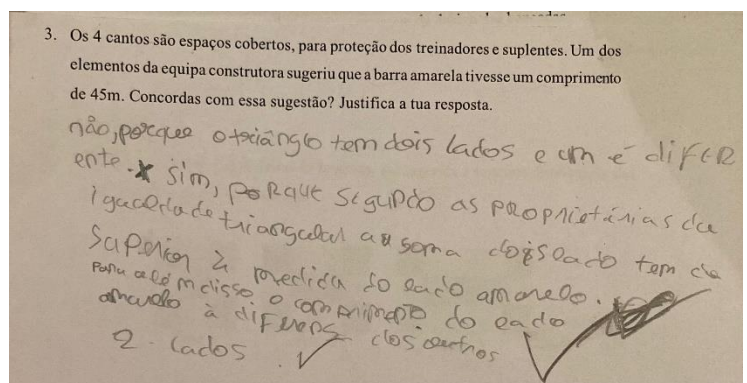 3. Os 4 cantos são espaços cobertos, para proteção dos treinadores e suplentes. Um dos
elementos da equipa construtora sugeriu que a barra amarela tivesse um comprimento
de 45m. Concordas com essa sugestão? Justifica a tua resposta.
não, porque o triânglo tem dois lados e um é difer
ente. x sim, porque segundo as proprietárias da
igualdade triangular a soma dois lado tem de
superior à medida do lado amarelo.
para além disso o comprimento do lado
amarelo à diferens dos outros
2. lados.